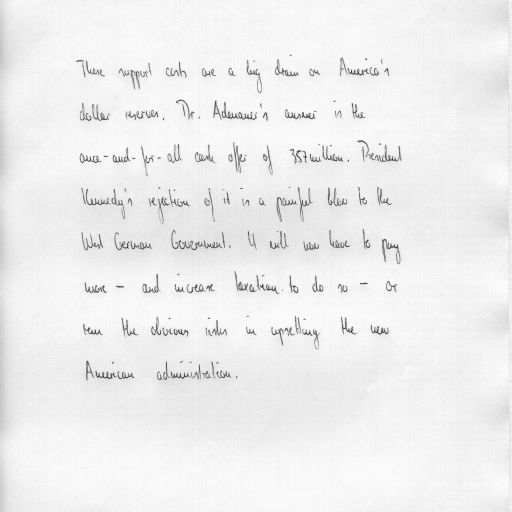 These support costs are a big drain on America's
dollar reserves. Dr. Adenauer's answer is the
once-and-for-all cash offer of 357 million. President
Kennedy's rejection of it is a painful blow to the
West German Government. It will now have to pay
more - and increase taxation to do so - or
run the obvious risks in upsetting the new
American administration.